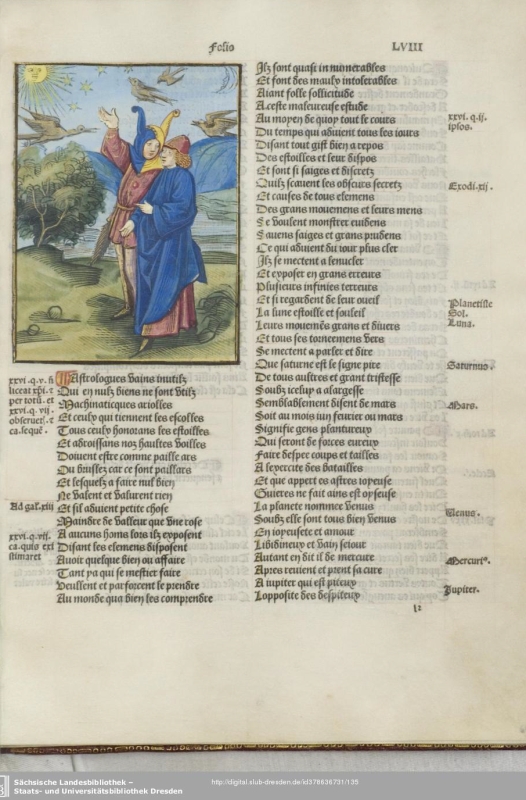 Folio LVIII
Astrologues vains inutilz
Qui en nulz biens ne sont vtilz
Machinatiques ariolles
Et ceulx qui tiennent les escolles
Tous ceulx honorans les estoilles
Et abroissans noz haultes voilles
Doiuent estre comme paille ars
Ou bruslez car ce sont paillars
Et lesquelz a faire nul bien
Ne valent et valurent rien
Et sil aduient petite chose
Maindre de valleur que vne rose
A aucuns homs lors ilz exposent
Disant les elemens disposent
Auoir quelque bien ou affaire
Tant ya qui se mesler faire
Veullent et par forcent le prendre
Au monde qua bien les comprendre
xxvi. q. v. n
liceat xpi. e
per totu. et
xxvi. q. vii.
obseruet. e
ca. seque.
Ad gal. iiii
xxvi. q. vii.
ca. quis exi
stimaret
Ilz sont quasi innumerables
Et font des maulx intolerables
Aiant folle sollicitude
A ceste maleureuse estude
Au moyen de quoy tout le cours
Du temps qui aduient tous les iours
Disant tout gist bien a repos
Des estoilles et leur dispos
Et sont si saiges et discretz
Quilz scauent les obscurs secretz
Et causes de tous elemens
Des grans mouemens et leurs mens
Se veulent monstrer euidens
Sauens saiges et grans prudens
Ce qui aduient du iour plus cler
Ilz se mectent a
Et exposer en grans erreurs
Plusieurs infinies terreurs
Et si regardent de leur oueil
La lune estoille et souleil
Leurs mouemēs grans et diuers
Et tous les tornemens vers
Se mectent a parler et dire
Que saturne est le signe pire
De tous aultres et grant tristesse
Soubz icelup a alargesse
Semblablement disent de mars
Soit au mois iun feurier ou mars
Signifie gens plantureux
Qui seront de forces eureux
Faire despee coups et tailles
A lexercite des batailles
Et que appert es astres ioyeuse
Guieres ne fait ains est oyseuse
La planete nommee venus
Soubz elle sont tous bien venus
En ioyeusete et amour
Libidineux et vain seiour
Autant en dit il de mercure
Apres reuient et prent sa cure
A iupiter qui est piteux
Lopposite des despiteux
xxvi. q. ii.
ipsos.
Exodi. xii.
Planetiste
Sol.
Luna.
Saturnus.
Mars.
Venus.
Mercuri⁹.
Jupiter.
Sächsische Landesbibliothek –
Staats- und Universitätsbibliothek Dresden
http://digital.slub-dresden.de/id378636731/135